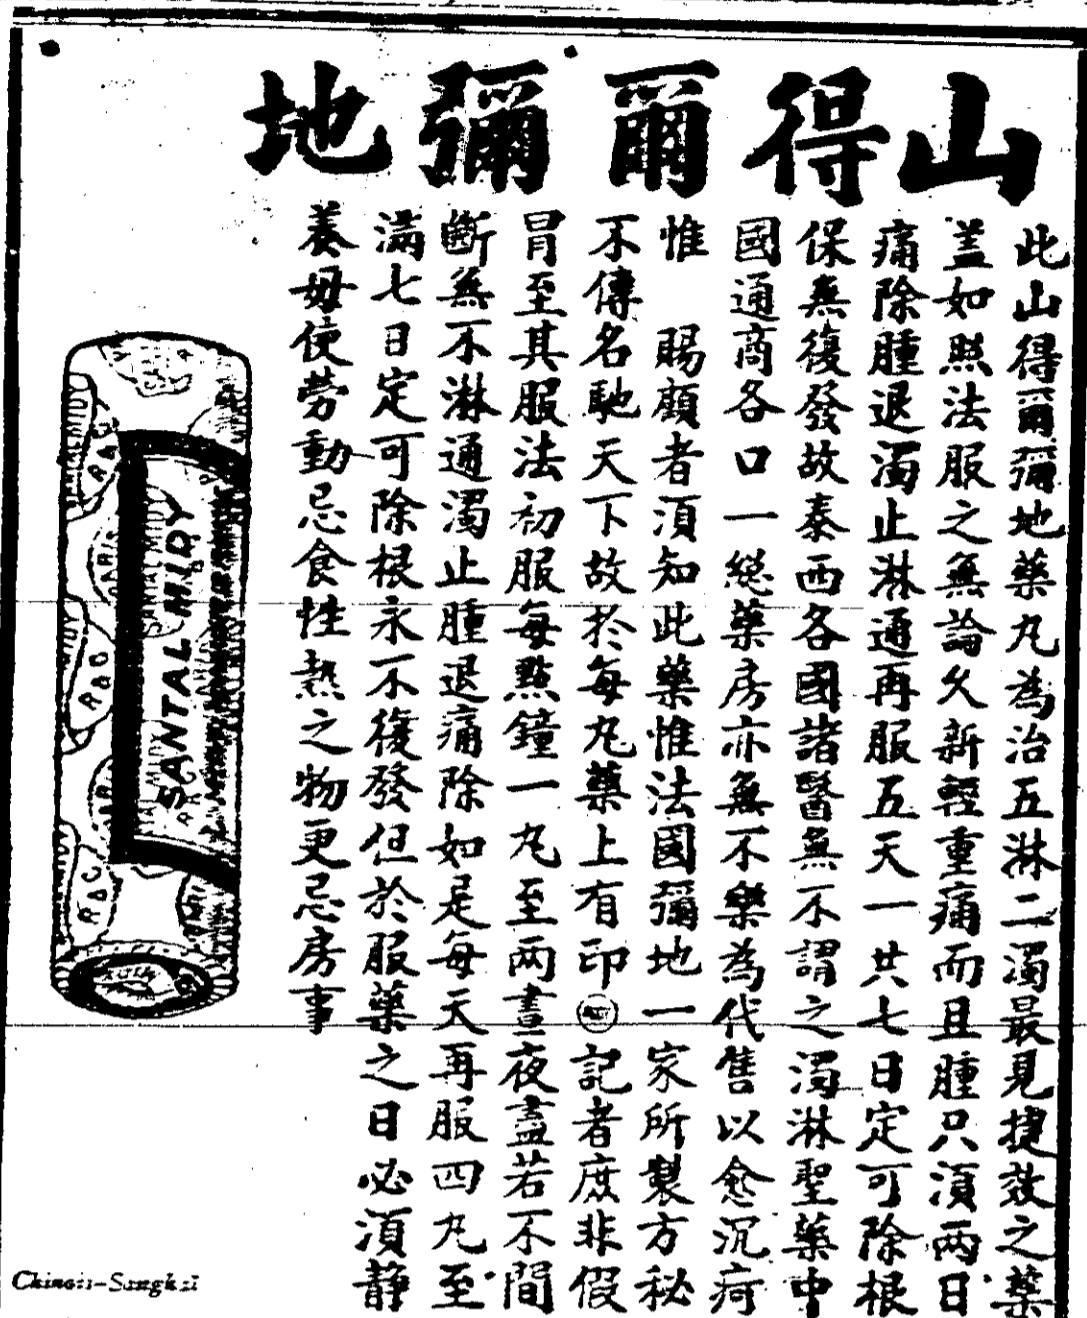 山得爾彌地
此山得爾彌地藥丸為治五淋二濁最見捷效之藥
盖如照法服之無論久新輕重痛而且腫只須兩日
痛除腫退濁止淋通再服五天一共七日定可除根
保無復發故泰西各國諸醫無不謂之濁淋聖藥中
國通商各口一總藥房亦無不樂為代售以愈沉疴
惟 賜顧者須知此藥惟法國彌地一家所製方秘
不傳名馳天下故於每丸藥上有印 記者庶非假
冒至其服法初服每點鐘一丸至兩晝夜盡若不間
斷無不淋通濁止腫退痛除如是每天再服四丸至
滿七日定可除根永不復發但於服藥之日必須靜
養毋使勞動忌食性熱之物更忌房事
SANTAL MIDY